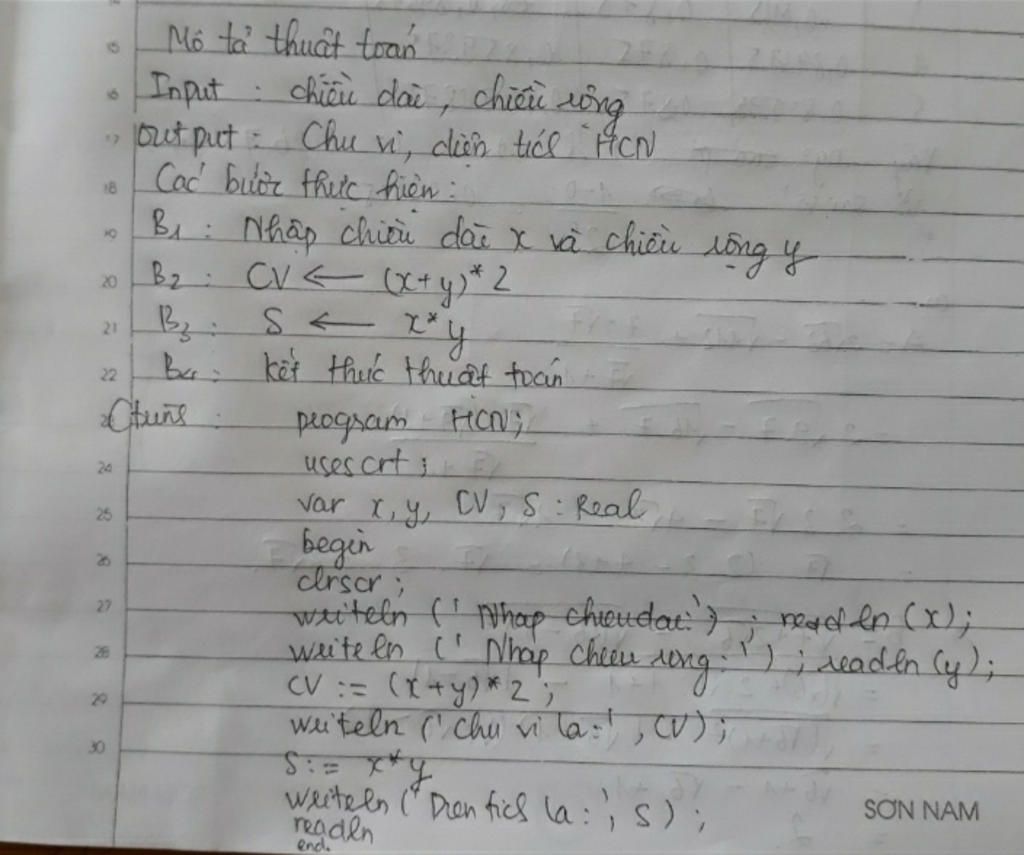 15 Mô tả thuật toán
16 Input : chiều dài, chiều rông
17 Output : Chu vi, diện tích HCN
18 Các bước thực hiện :
19 B1 : Nhâp chiều dài x và chiều rộng y
20 B2 : CV ← (x+y)*2
21 B3 : S ← x*y
22 B4 : kết thúc thuật toán
program HCN;
24 uses crt ;
25 var x, y, CV, S : Real
26 begin
clrscr ;
27 writeln (' Nhap chieudai:') ; readln (x);
28 writeln (' Nhap chieu rong :') ; readln (y);
29 CV := (x+y)*2 ;
writeln ('Chu vi la :' , CV) ;
30 S := x*y
writeln ('Dien tich la :', S) ;
readln
end.
SƠN NAM